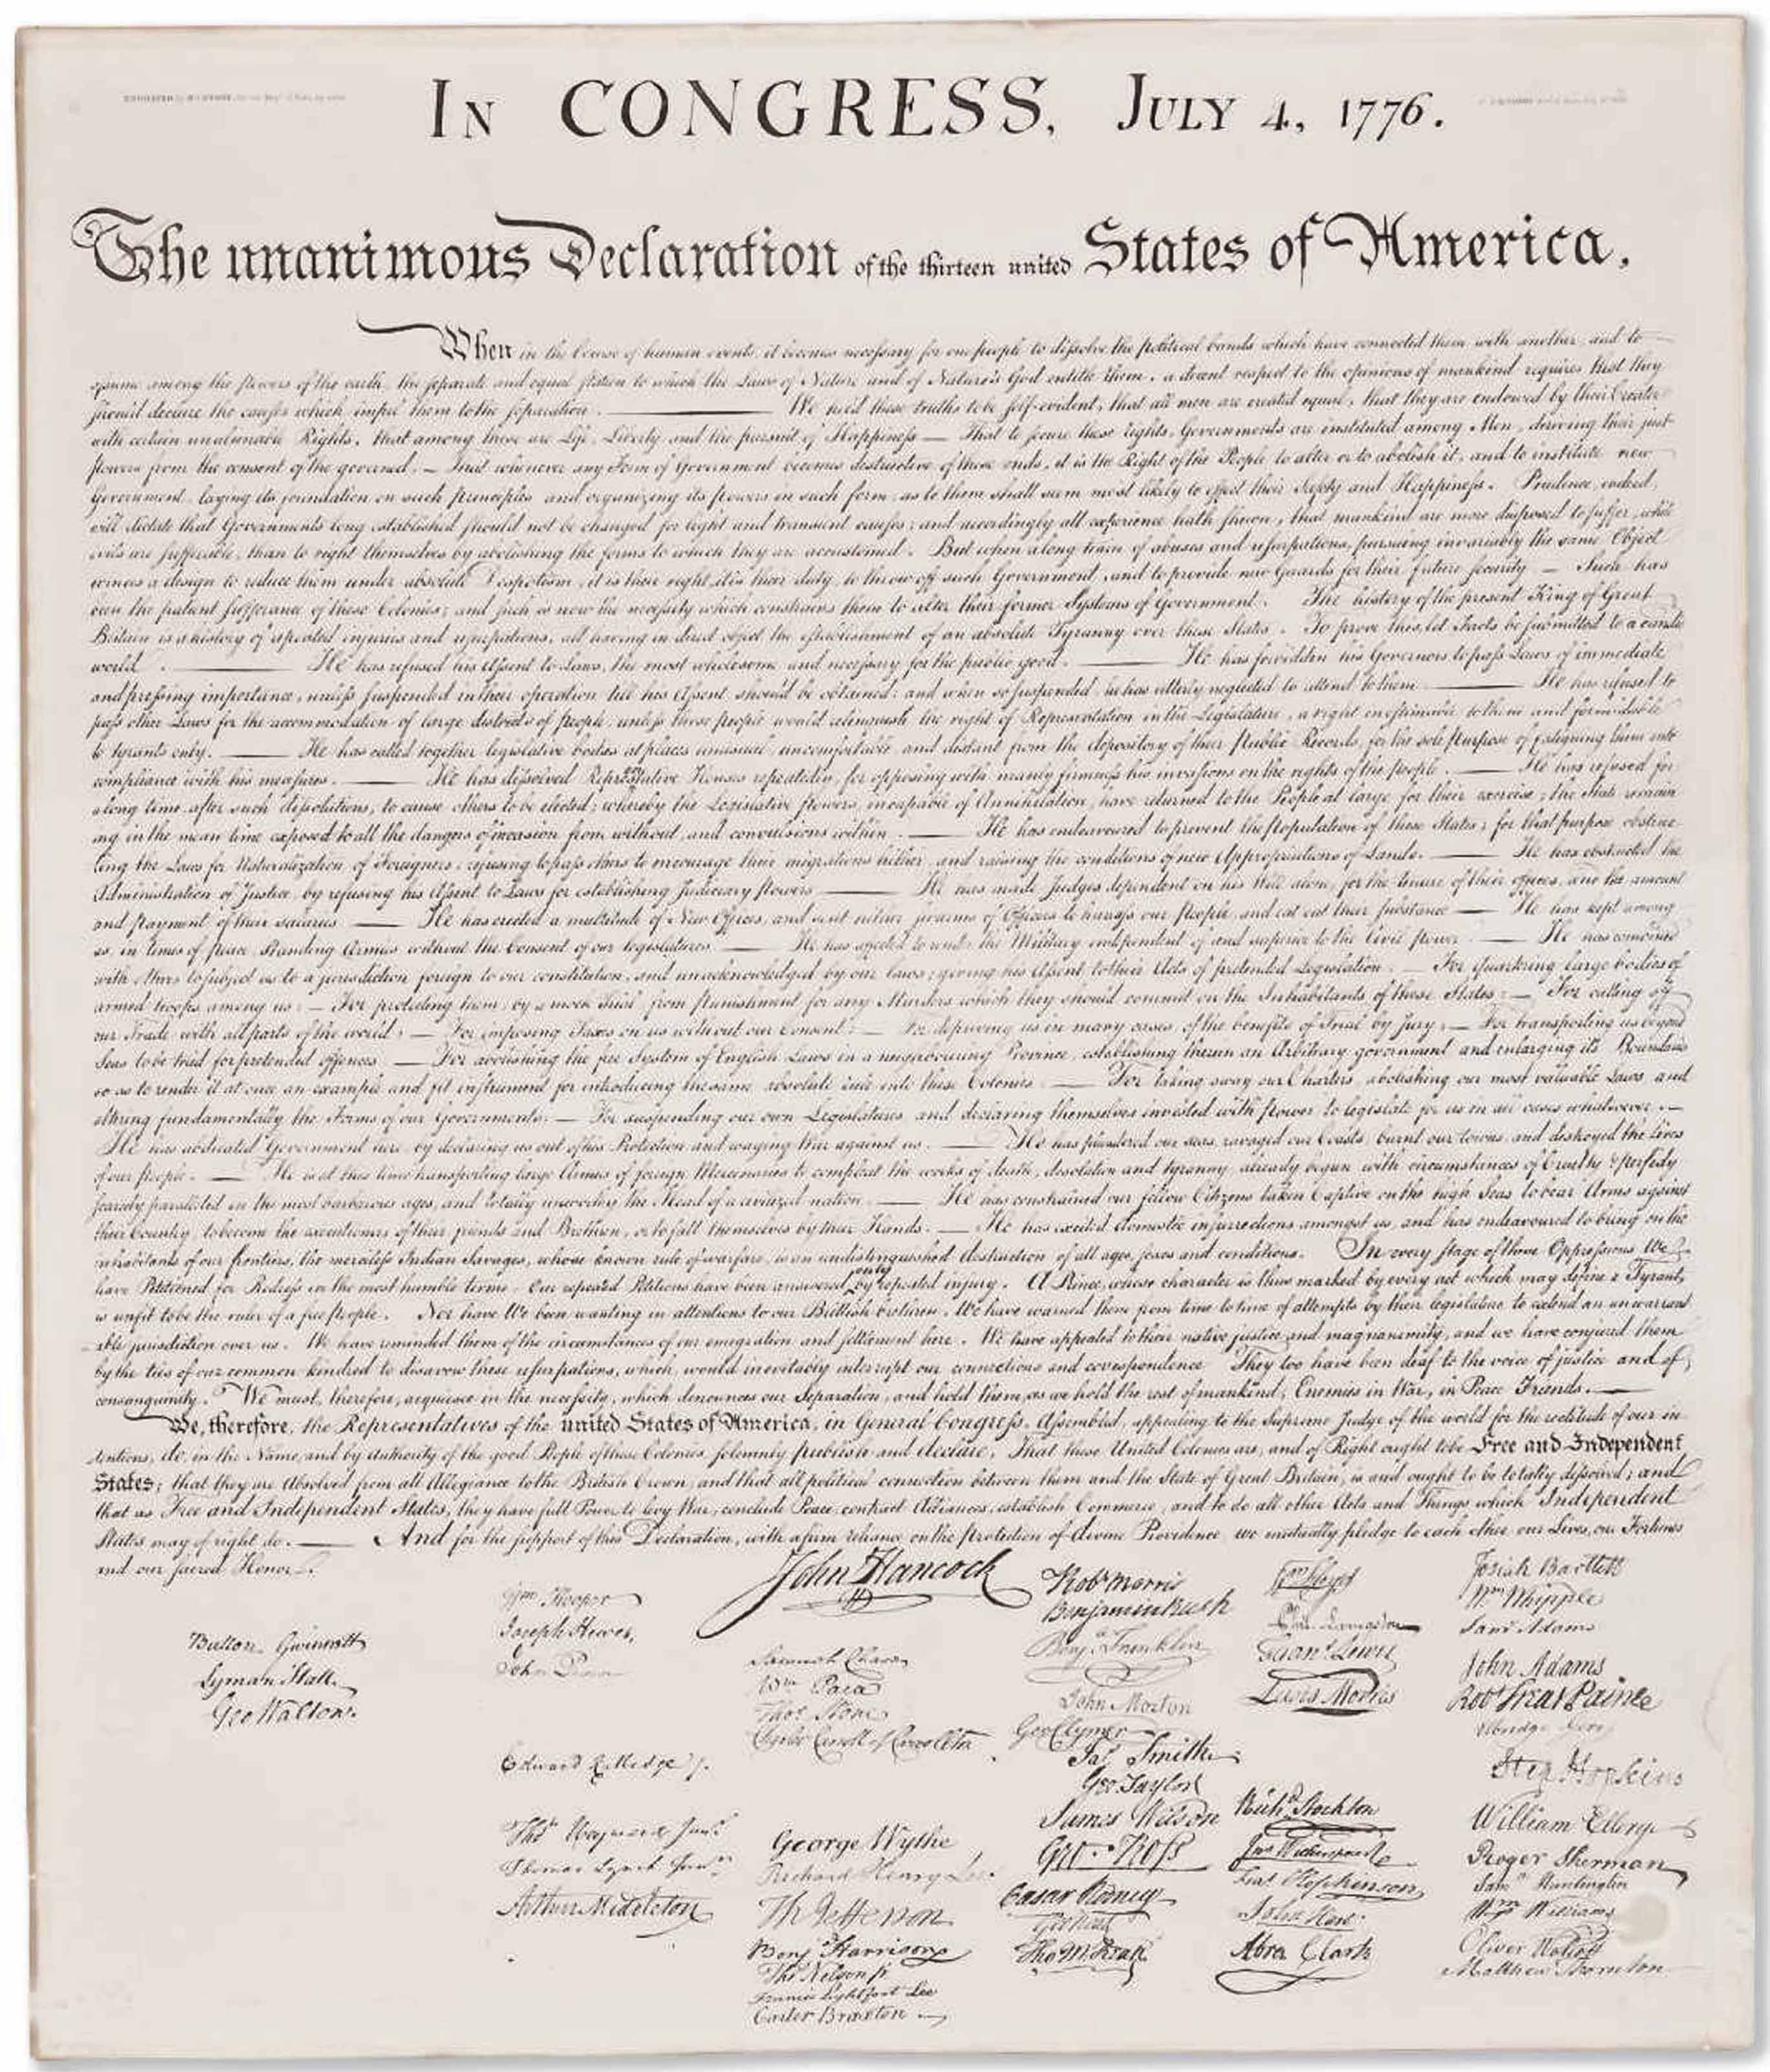 IN CONGRESS, JULY 4, 1776.
The unanimous Declaration of the thirteen united States of America,
When in the Course of human events, it becomes necessary for one people to dissolve the political bands which have connected them with another, and to
assume among the powers of the earth, the separate and equal station to which the Laws of Nature and of Nature's God entitle them, a decent respect to the opinions of mankind requires that they
should declare the causes which impel them to the separation. ——— We hold these truths to be self-evident, that all men are created equal, that they are endowed by their Creator
with certain unalienable Rights, that among these are Life, Liberty and the pursuit of Happiness — That to secure these rights, Governments are instituted among Men, deriving their just
powers from the consent of the governed, — That whenever any Form of Government becomes destructive of these ends, it is the Right of the People to alter or to abolish it, and to institute new
Government, laying its foundation on such principles and organizing its powers in such form, as to them shall seem most likely to effect their Safety and Happiness. Prudence, indeed,
will dictate that Governments long established should not be changed for light and transient causes; and accordingly all experience hath shewn, that mankind are more disposed to suffer, while
evils are sufferable, than to right themselves by abolishing the forms to which they are accustomed. But when a long train of abuses and usurpations, pursuing invariably the same Object
evinces a design to reduce them under absolute Despotism, it is their right, it is their duty, to throw off such Government, and to provide new Guards for their future security — Such has
been the patient sufferance of these Colonies; and such is now the necessity which constrains them to alter their former Systems of Government. The history of the present King of Great
Britain is a history of repeated injuries and usurpations, all having in direct object the establishment of an absolute Tyranny over these States. To prove this, let Facts be submitted to a candid
world. ——— He has refused his Assent to Laws, the most wholesome and necessary for the public good. ——— He has forbidden his Governors to pass Laws of immediate
and pressing importance, unless suspended in their operation till his Assent should be obtained; and when so suspended, he has utterly neglected to attend to them ——— He has refused to
pass other Laws for the accommodation of large districts of people, unless those people would relinquish the right of Representation in the Legislature, a right inestimable to them and formidable
to tyrants only. ——— He has called together legislative bodies at places unusual, uncomfortable, and distant from the depository of their Public Records, for the sole purpose of fatiguing them into
compliance with his measures. ——— He has dissolved Representative Houses repeatedly, for opposing with manly firmness his invasions on the rights of the people. ——— He has refused for
a long time, after such dissolutions, to cause others to be elected; whereby the Legislative powers, incapable of Annihilation, have returned to the People at large for their exercise; the State remain
ing in the mean time exposed to all the dangers of invasion from without, and convulsions within. ——— He has endeavoured to prevent the population of these States; for that purpose obstruc
ting the Laws for Naturalization of Foreigners; refusing to pass others to encourage their migrations hither, and raising the conditions of new Appropriations of Lands. ——— He has obstructed the
Administration of Justice, by refusing his Assent to Laws for establishing Judiciary powers ——— He has made Judges dependent on his Will alone, for the tenure of their offices, and the amount
and payment of their salaries. ——— He has erected a multitude of New Offices, and sent hither swarms of Officers to harrass our people, and eat out their substance ——— He has kept among
us, in times of peace, Standing Armies without the Consent of our legislatures. ——— He has affected to render the Military independent of and superior to the Civil power. ——— He has combined
with others to subject us to a jurisdiction foreign to our constitution, and unacknowledged by our laws; giving his Assent to their Acts of pretended Legislation. — For quartering large bodies of
armed troops among us: — For protecting them, by a mock Trial, from punishment for any Murders which they should commit on the Inhabitants of these States: — For cutting off
our Trade with all parts of the world: — For imposing Taxes on us without our Consent: — For depriving us in many cases, of the benefits of Trial by Jury: — For transporting us beyond
Seas to be tried for pretended offences — For abolishing the free System of English Laws in a neighbouring Province, establishing therein an Arbitrary government, and enlarging its Boundaries
so as to render it at once an example and fit instrument for introducing the same absolute rule into these Colonies: — For taking away our Charters, abolishing our most valuable Laws, and
altering fundamentally the Forms of our Governments: — For suspending our own Legislatures, and declaring themselves invested with power to legislate for us in all cases whatsoever. —
He has abdicated Government here, by declaring us out of his Protection and waging War against us. — He has plundered our seas, ravaged our Coasts, burnt our towns, and destroyed the lives
of our people. — He is at this time transporting large Armies of foreign Mercenaries to compleat the works of death, desolation and tyranny, already begun with circumstances of Cruelty & perfidy
scarcely paralleled in the most barbarous ages, and totally unworthy the Head of a civilized nation. — He has constrained our fellow Citizens taken Captive on the high Seas to bear Arms against
their Country, to become the executioners of their friends and Brethren, or to fall themselves by their Hands. — He has excited domestic insurrections amongst us, and has endeavoured to bring on the
inhabitants of our frontiers, the merciless Indian Savages, whose known rule of warfare, is an undistinguished destruction of all ages, sexes and conditions. In every stage of these Oppressions We
have Petitioned for Redress in the most humble terms: Our repeated Petitions have been answered only by repeated injury. A Prince, whose character is thus marked by every act which may define a Tyrant,
is unfit to be the ruler of a free people. Nor have We been wanting in attentions to our Brittish brethren. We have warned them from time to time of attempts by their legislature to extend an unwarrant
able jurisdiction over us. We have reminded them of the circumstances of our emigration and settlement here. We have appealed to their native justice and magnanimity, and we have conjured them
by the ties of our common kindred to disavow these usurpations, which, would inevitably interrupt our connections and correspondence They too have been deaf to the voice of justice and of
consanguinity. We must, therefore, acquiesce in the necessity, which denounces our Separation, and hold them, as we hold the rest of mankind, Enemies in War, in Peace Friends. —
We, therefore, the Representatives of the united States of America, in General Congress, Assembled, appealing to the Supreme Judge of the world for the rectitude of our in
tentions, do, in the Name, and by Authority of the good People of these Colonies, solemnly publish and declare, That these United Colonies are, and of Right ought to be Free and Independent
States; that they are Absolved from all Allegiance to the British Crown, and that all political connection between them and the State of Great Britain, is and ought to be totally dissolved; and
that as Free and Independent States, they have full Power to levy War, conclude Peace, contract Alliances, establish Commerce, and to do all other Acts and Things which Independent
States may of right do. ——— And for the support of this Declaration, with a firm reliance on the protection of divine Providence, we mutually pledge to each other our Lives, our Fortunes
and our sacred Honor.
Button Gwinnett
Lyman Hall
Geo Walton.
Wm Hooper
Joseph Hewes,
John Penn
Edward Rutledge /.
Thos Heyward Junr.
Thomas Lynch Junr.
Arthur Middleton
John Hancock
Samuel Chase
Wm Paca
Thos Stone
Charles Carroll of Carrollton
George Wythe
Richard Henry Lee
Th Jefferson
Benj Harrison
Thos Nelson jr.
Francis Lightfoot Lee
Carter Braxton
Robt Morris
Benjamin Rush
Benj. Franklin
John Morton
Geo Clymer
Jas Smith
Geo. Taylor
James Wilson
Geo. Ross
Caesar Rodney
Geo Read
Tho M:Kean
Wm Floyd
Phil. Livingston
Frans. Lewis
Lewis Morris
Richd. Stockton
Jno Witherspoon
Fras. Hopkinson
John Hart
Abra Clark
Josiah Bartlett
Wm Whipple
Saml Adams
John Adams
Robt Treat Paine
Elbridge Gerry
Step. Hopkins
William Ellery
Roger Sherman
Saml Huntington
Wm Williams
Oliver Wolcott
Matthew Thornton